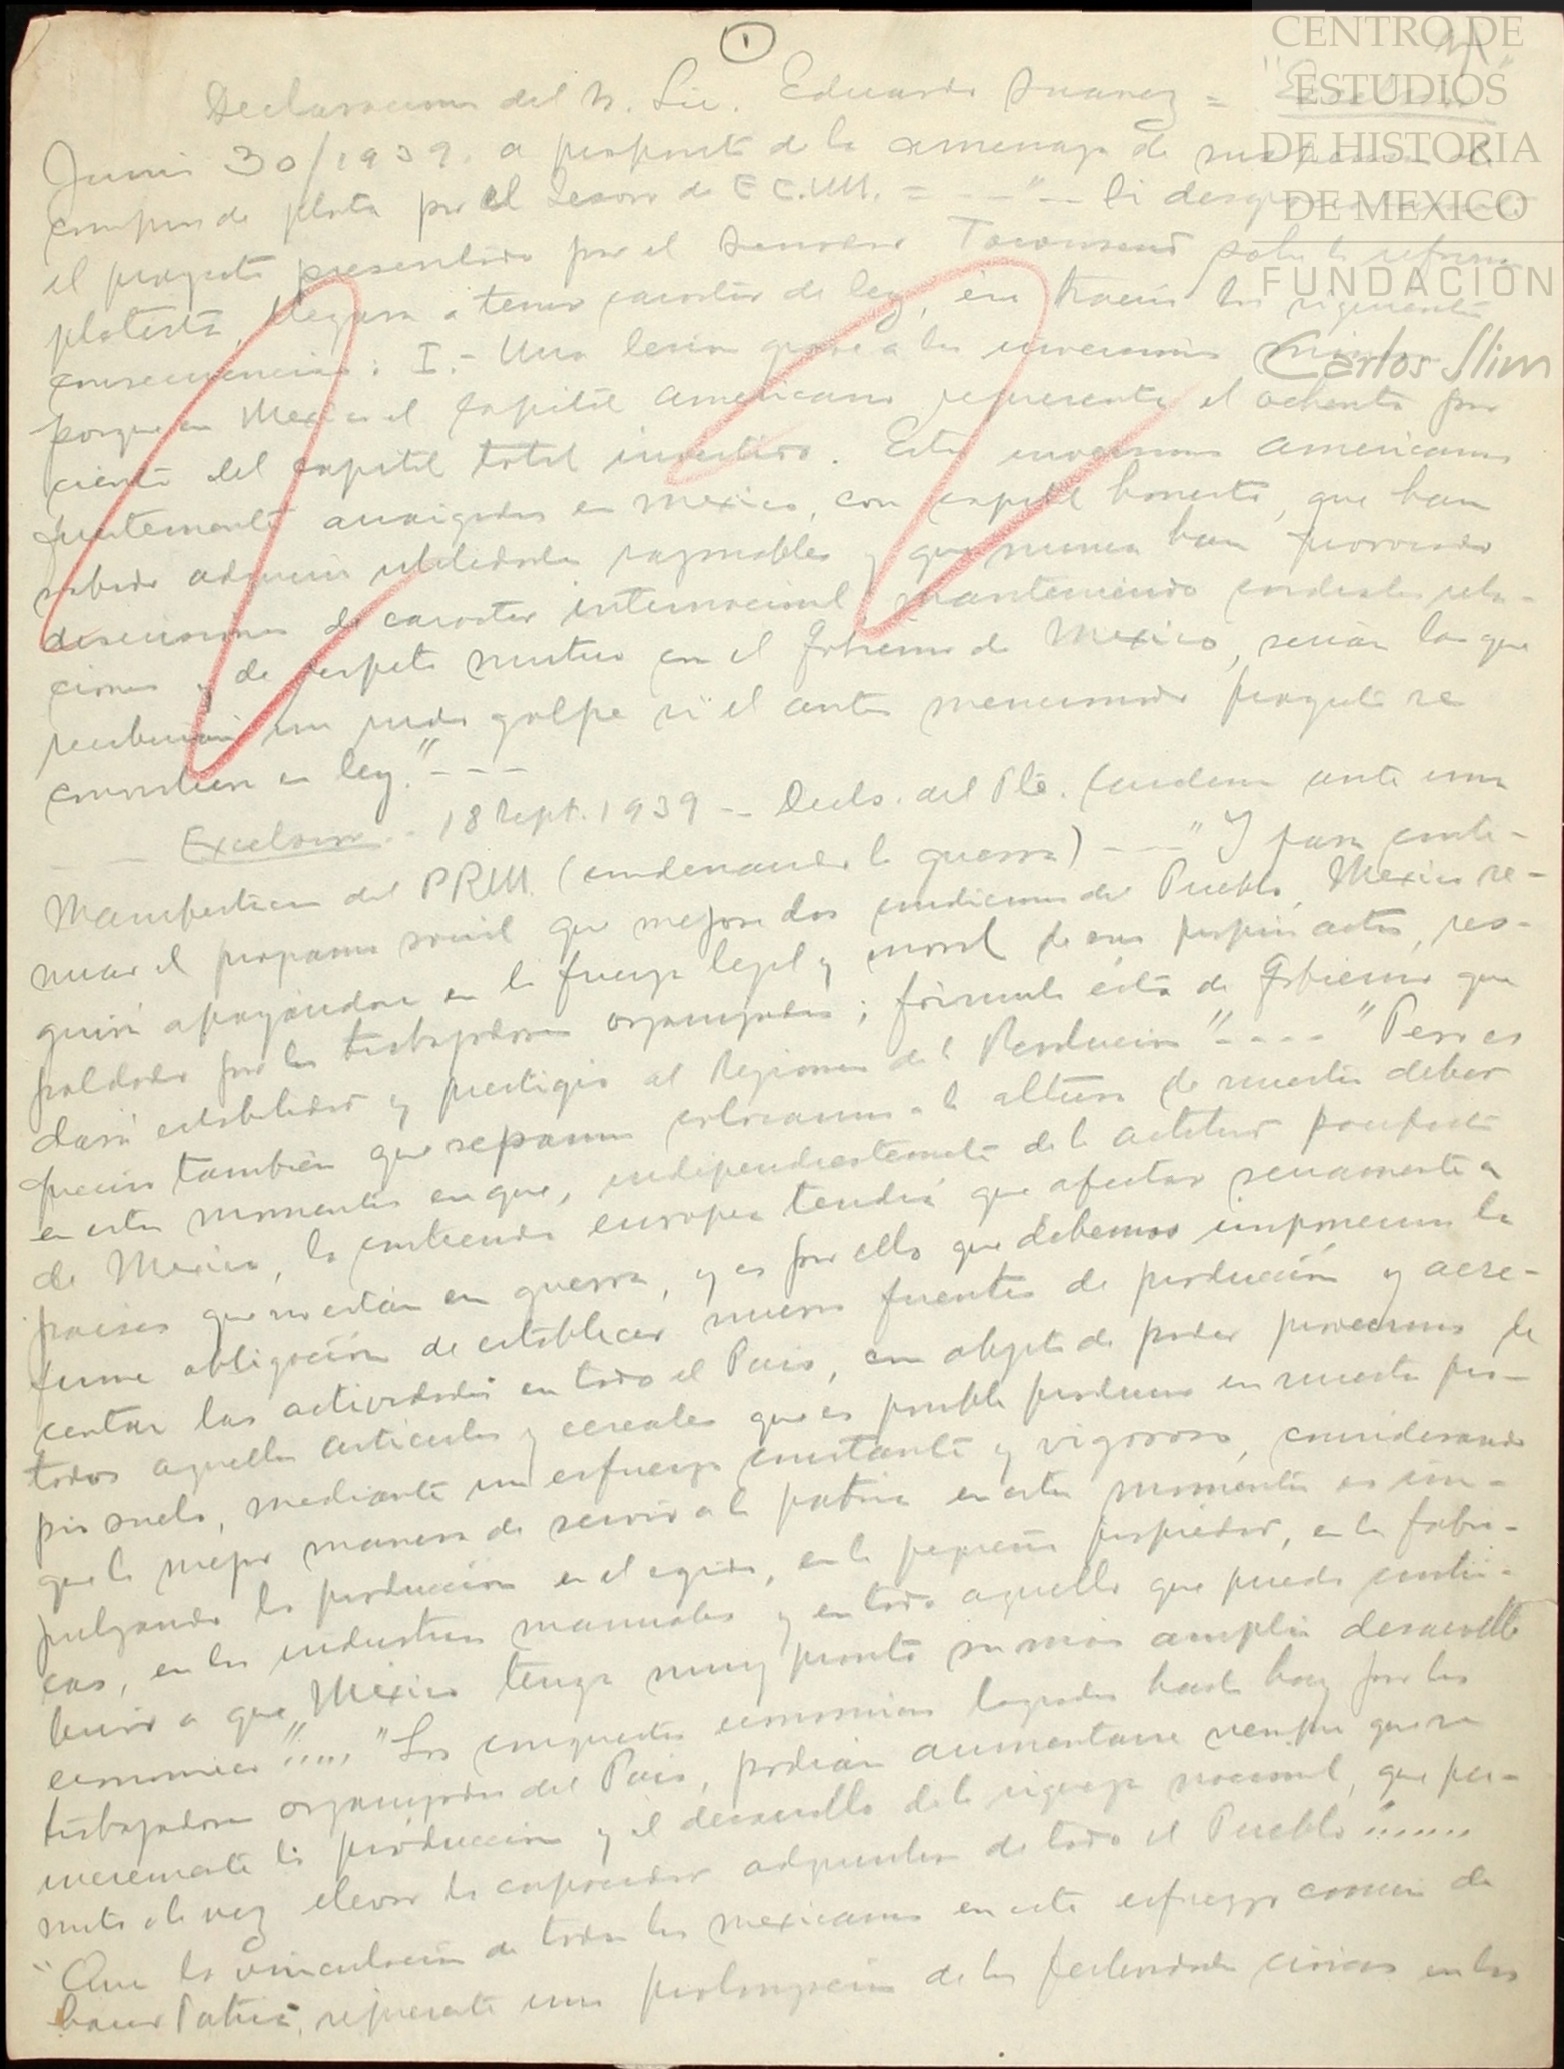 1
CENTRO DE
ESTUDIOS
DE HISTORIA
DE MEXICO
FUNDACIÓN
Carlos Slim
Declaraciones del Sr. Lic. Eduardo Suarez =
Junio 30/1939. a proposito de la amenaza de
compras de plata por el Tesoro de EE.UU. = - - - " - - Si desgraciadamente
el proyecto presentado por el Senador Townsend sobre la reforma
platista, llegara a tener caracter de ley, ella traería las siguientes
consecuencias: I.- Una lesion grave a las inversiones
porque en Mexico el capital americano representa el ochenta por
ciento del capital total invertido. Estas inversiones americanas
fuertemente arraigadas en Mexico, con capital honesto, que han
sabido adquirir utilidades razonables y que nunca han provocado
discusiones de caracter internacional manteniendo cordiales rela-
ciones y de respeto mutuo con el Gobierno de Mexico, serían las que
recibirían un rudo golpe si el antes mencionado proyecto se
convirtiera en ley." - - -
- - Excelsior - 18 Sept. 1939 - - Decls. del Pte. Cardenas ante una
Manifestacion del PRM. (condenando la guerra) - - - " Y para conti-
nuar el programa social que mejore las condiciones del Pueblo, Mexico se-
guirá apoyandose en la fuerza legal y moral de sus propios actos, res-
paldado por los trabajadores organizados; fórmula ésta de Gobierno que
dará estabilidad y prestigio al Regimen de la Revolucion" - - - - "Pero es
preciso también que sepamos colocarnos a la altura de nuestro deber
en estos momentos en que, independientemente de la actitud pacifista
de Mexico, la contienda europea tendrá que afectar seriamente a
paises que no están en guerra, y es por ello que debemos imponernos la
firme obligación de establecer nuevas fuentes de producción y acre-
centar las actividades en todo el País, con objeto de poder proveernos de
todos aquellos articulos y cereales que es posible producir en nuestro pro-
pio suelo, mediante un esfuerzo constante y vigoroso, considerando
que la mejor manera de servir a la patria en estos momentos es im-
pulsando la producción en el egido, en la pequeña propiedad, en las fabri-
cas, en las industrias manuales y en todo aquello que pueda contri-
buir a que Mexico tenga muy pronto su más amplio desarrollo
economico"..... "Las conquistas economicas logradas hasta hoy por los
trabajadores organizados del País, podrán aumentarse siempre que se
incremente la producción y el desarrollo de la riqueza nacional, que per-
mita a la vez elevar la capacidad adquisitiva de todo el Pueblo".......
"Que la vinculación de todos los mexicanos en este esfuerzo común de
hacer Patria, represente una prolongación de las festividades civicas en las